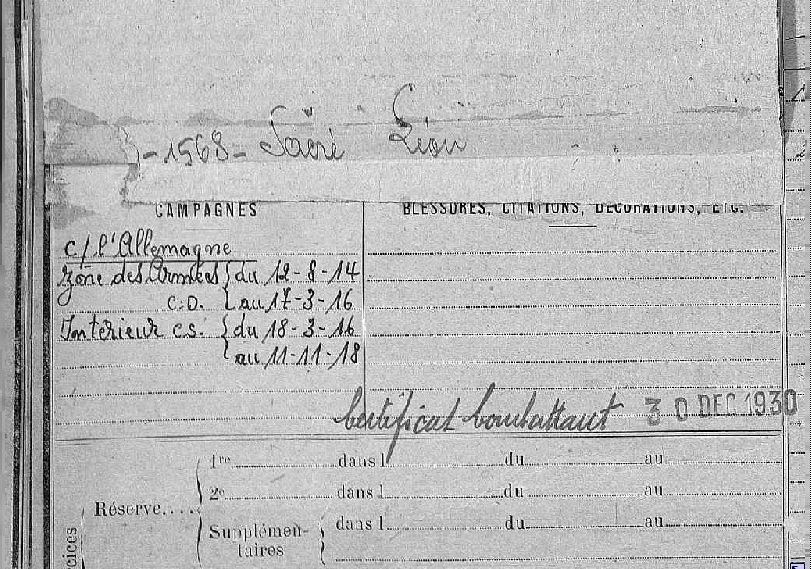 -1568- Sacré Léon
CAMPAGNES
BLESSURES, CITATIONS, DÉCORATIONS, ETC.
c/ l'Allemagne
Zône des Armées { du 12-8-14
C.D. { au 17-3-16
Intérieur c.s. { du 18-3-16
au 11-11-18
Certificat Combattant 30 DEC 1930
1re dans l du au
Réserve.... 2e dans l du au
Supplémen-
taires { dans l du au